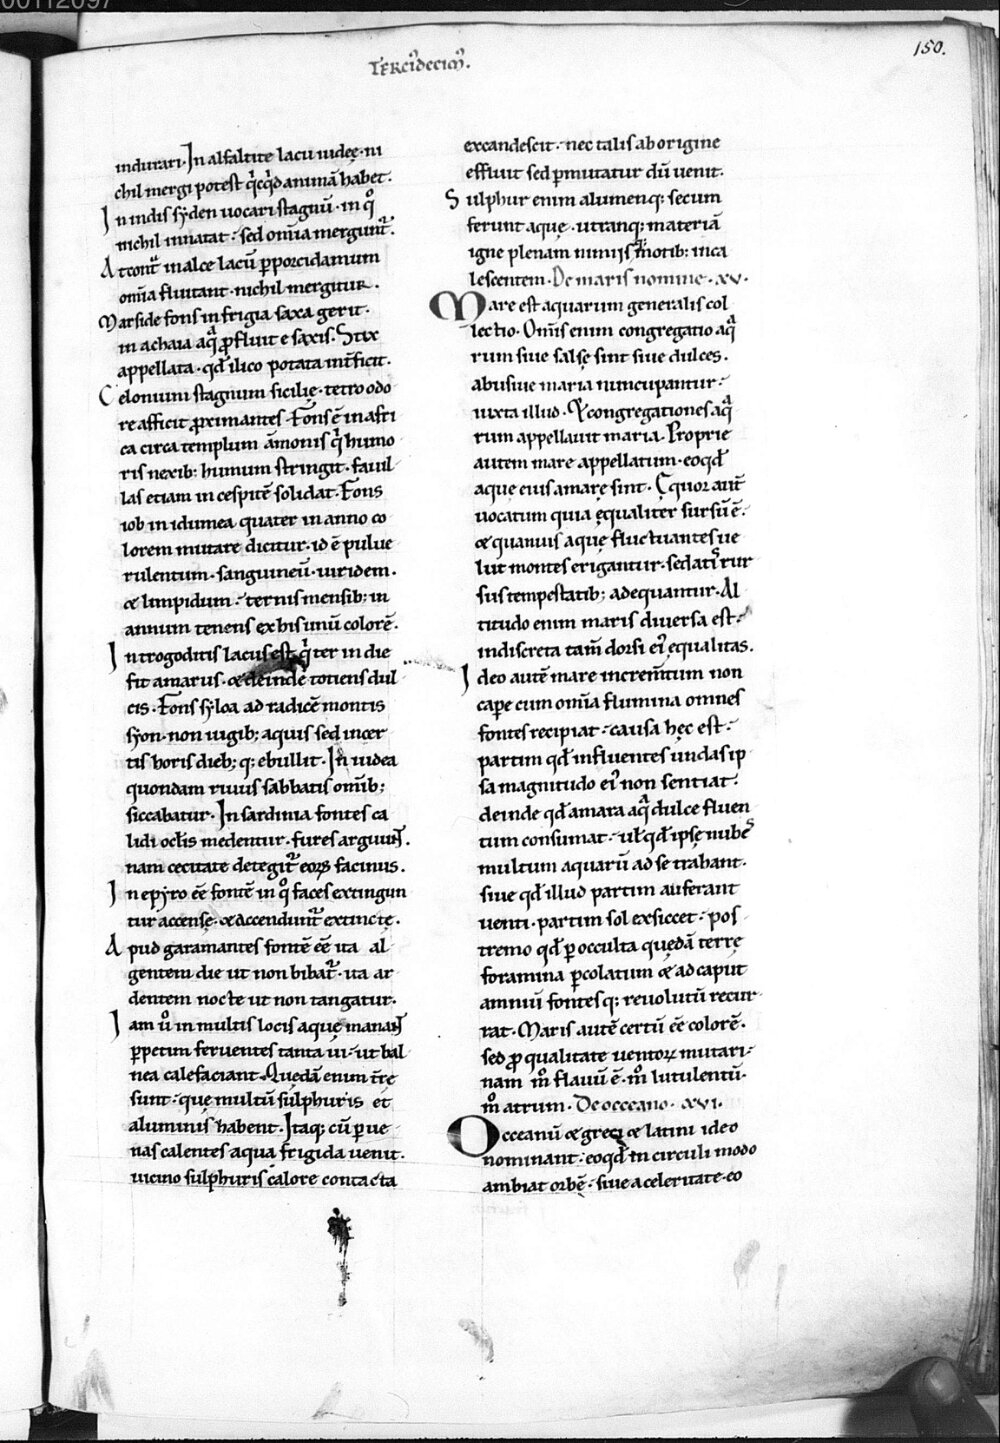 00112097
150.
TERCIꝰDECIMꝰ.
indurari. In alfaltite lacu iudeę. ni
chil mergi potest q̇cq̇d animā habet.
In indis syden uocari stagnū. in q̊
nichil innatat. sed om̄ia mergunt᷑.
At contᷓ in alce lacū ꝑporcidamum
om̄ia fluitant. nichil mergitur.
Marside fons in frigia saxa gerit.
in achaia aqᷓ ꝓfluit e saxis. Stix
appellata. qd̄ ilico potata int̄ficit.
Gelonium stagnum sicilię. tetro odo
re afficit ꝓximantes. Fons ē in afri
ca circa templum āmonis q̇ humo
ris nexib; humum stringit. fauil
las etiam in cespitē solidat. Fons
iob in idumea quater in anno co
lorem mutare dicitur. id ē pulue
rulentum. sanguineū. uiridem.
& limpidum. ternis mensib; in
annum tenens ex his unū colorē.
In trogoditis lacus est q̇ ter in die
fit amarus. & deinde totiens dul
cis. Fons syloa ad radicē montis
syon. non iugib; aquis sed incer
tis horis dieb; q; ebullit. In iudea
quondam riuus sabbatis om̄ib;
siccabatur. In sardinia fontes ca
lidi oc̄lis medentur. fures arguunt᷑.
nam cecitate detegit᷑ eoꝝ facinus.
In epyro eē fontē in q̊ faces extingun
tur accensę. & accendunt᷑ extinctę.
Apud garamantes fontē eē ita al
gentem die ut non bibat᷑. ita ar
dentem nocte ut non tangatur.
Iam ů in multis locis aquę manant
ꝑpetim feruentes tanta ui. ut bal
nea calefaciant. Quedā enim t̄re
sunt. quę multū sulphuris et
aluminis habent. Itaq; cū ꝑ ue
nas calentes aqua frigida uenit.
uicino sulphuris calore contacta
excandescit. nec talis ab origine
effluit sed ꝑmutatur dū uenit.
Sulphur enim alumenq; secum
ferunt aquę. utranq; materiā
igne plenam nimiis motib; inca
lescentem. De maris nomine. xv.
Mare est aquarum generalis col
lectio. Om̄is enim congregatio aqᷓ
rum siue salsę sint siue dulces.
abusiue maria nuncupantur.
iuxta illud. & congregationes aqᷓ
rum appellauit maria. Proprie
autem mare appellatum. eoqd̄
aque eius amarę sint. Ęquor aut̄
uocatum quia ęqualiter sursū ē.
& quamuis aquę fluctuantes ue
lut montes erigantur. sedatis rur
sus tempestatib; adequantur. Al
titudo enim maris diuersa est.
indiscreta tam̄ dorsi eiꝰ ęqualitas.
Ideo autē mare increm̄tum non
capere cum om̄ia flumina omnes
fontes recipiat. causa hęc est.
partim qd̄ influentes undas ip
sa magnitudo eiꝰ non sentiat.
deinde qd̄ amara aqᷓ dulce fluen
tum consumat. ul̄ qd̄ ipsę nubes
multum aquarū ad se trahant.
siue qd̄ illud partim auferant
uenti. partim sol exsiccet. pos
tremo qd̄ ꝑ occulta quędā terrę
foramina ꝑcolatum & ad caput
amniū fontesq; reuolutū recur
rat. Maris autē certū eē colorē.
sed ꝓ qualitate uentoꝝ mutari.
nam m̊ flauū ē. m̊ lutulentū.
m̊ atrum. De occeano. xvi.
Occeanū & greci & latini ideo
nominant. eoqd̄ in circuli modo
ambiat orbē. siue a celeritate. eo